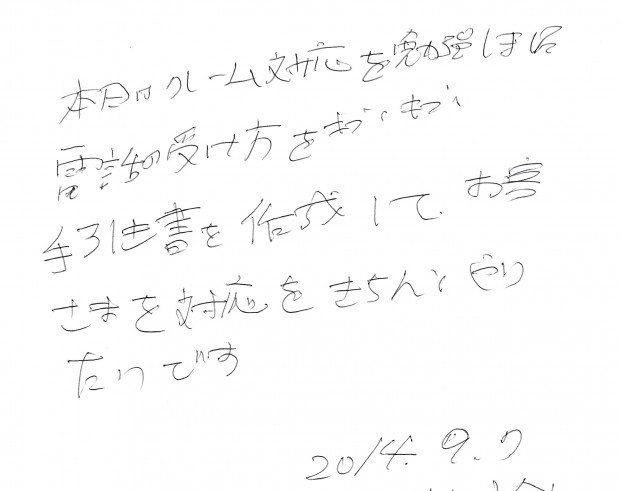 本日はクレーム対応を勉強しました
電話の受け方を
手引き書を作成して、お客
さまを対応をきちんとやり
たいです
2014.9.7